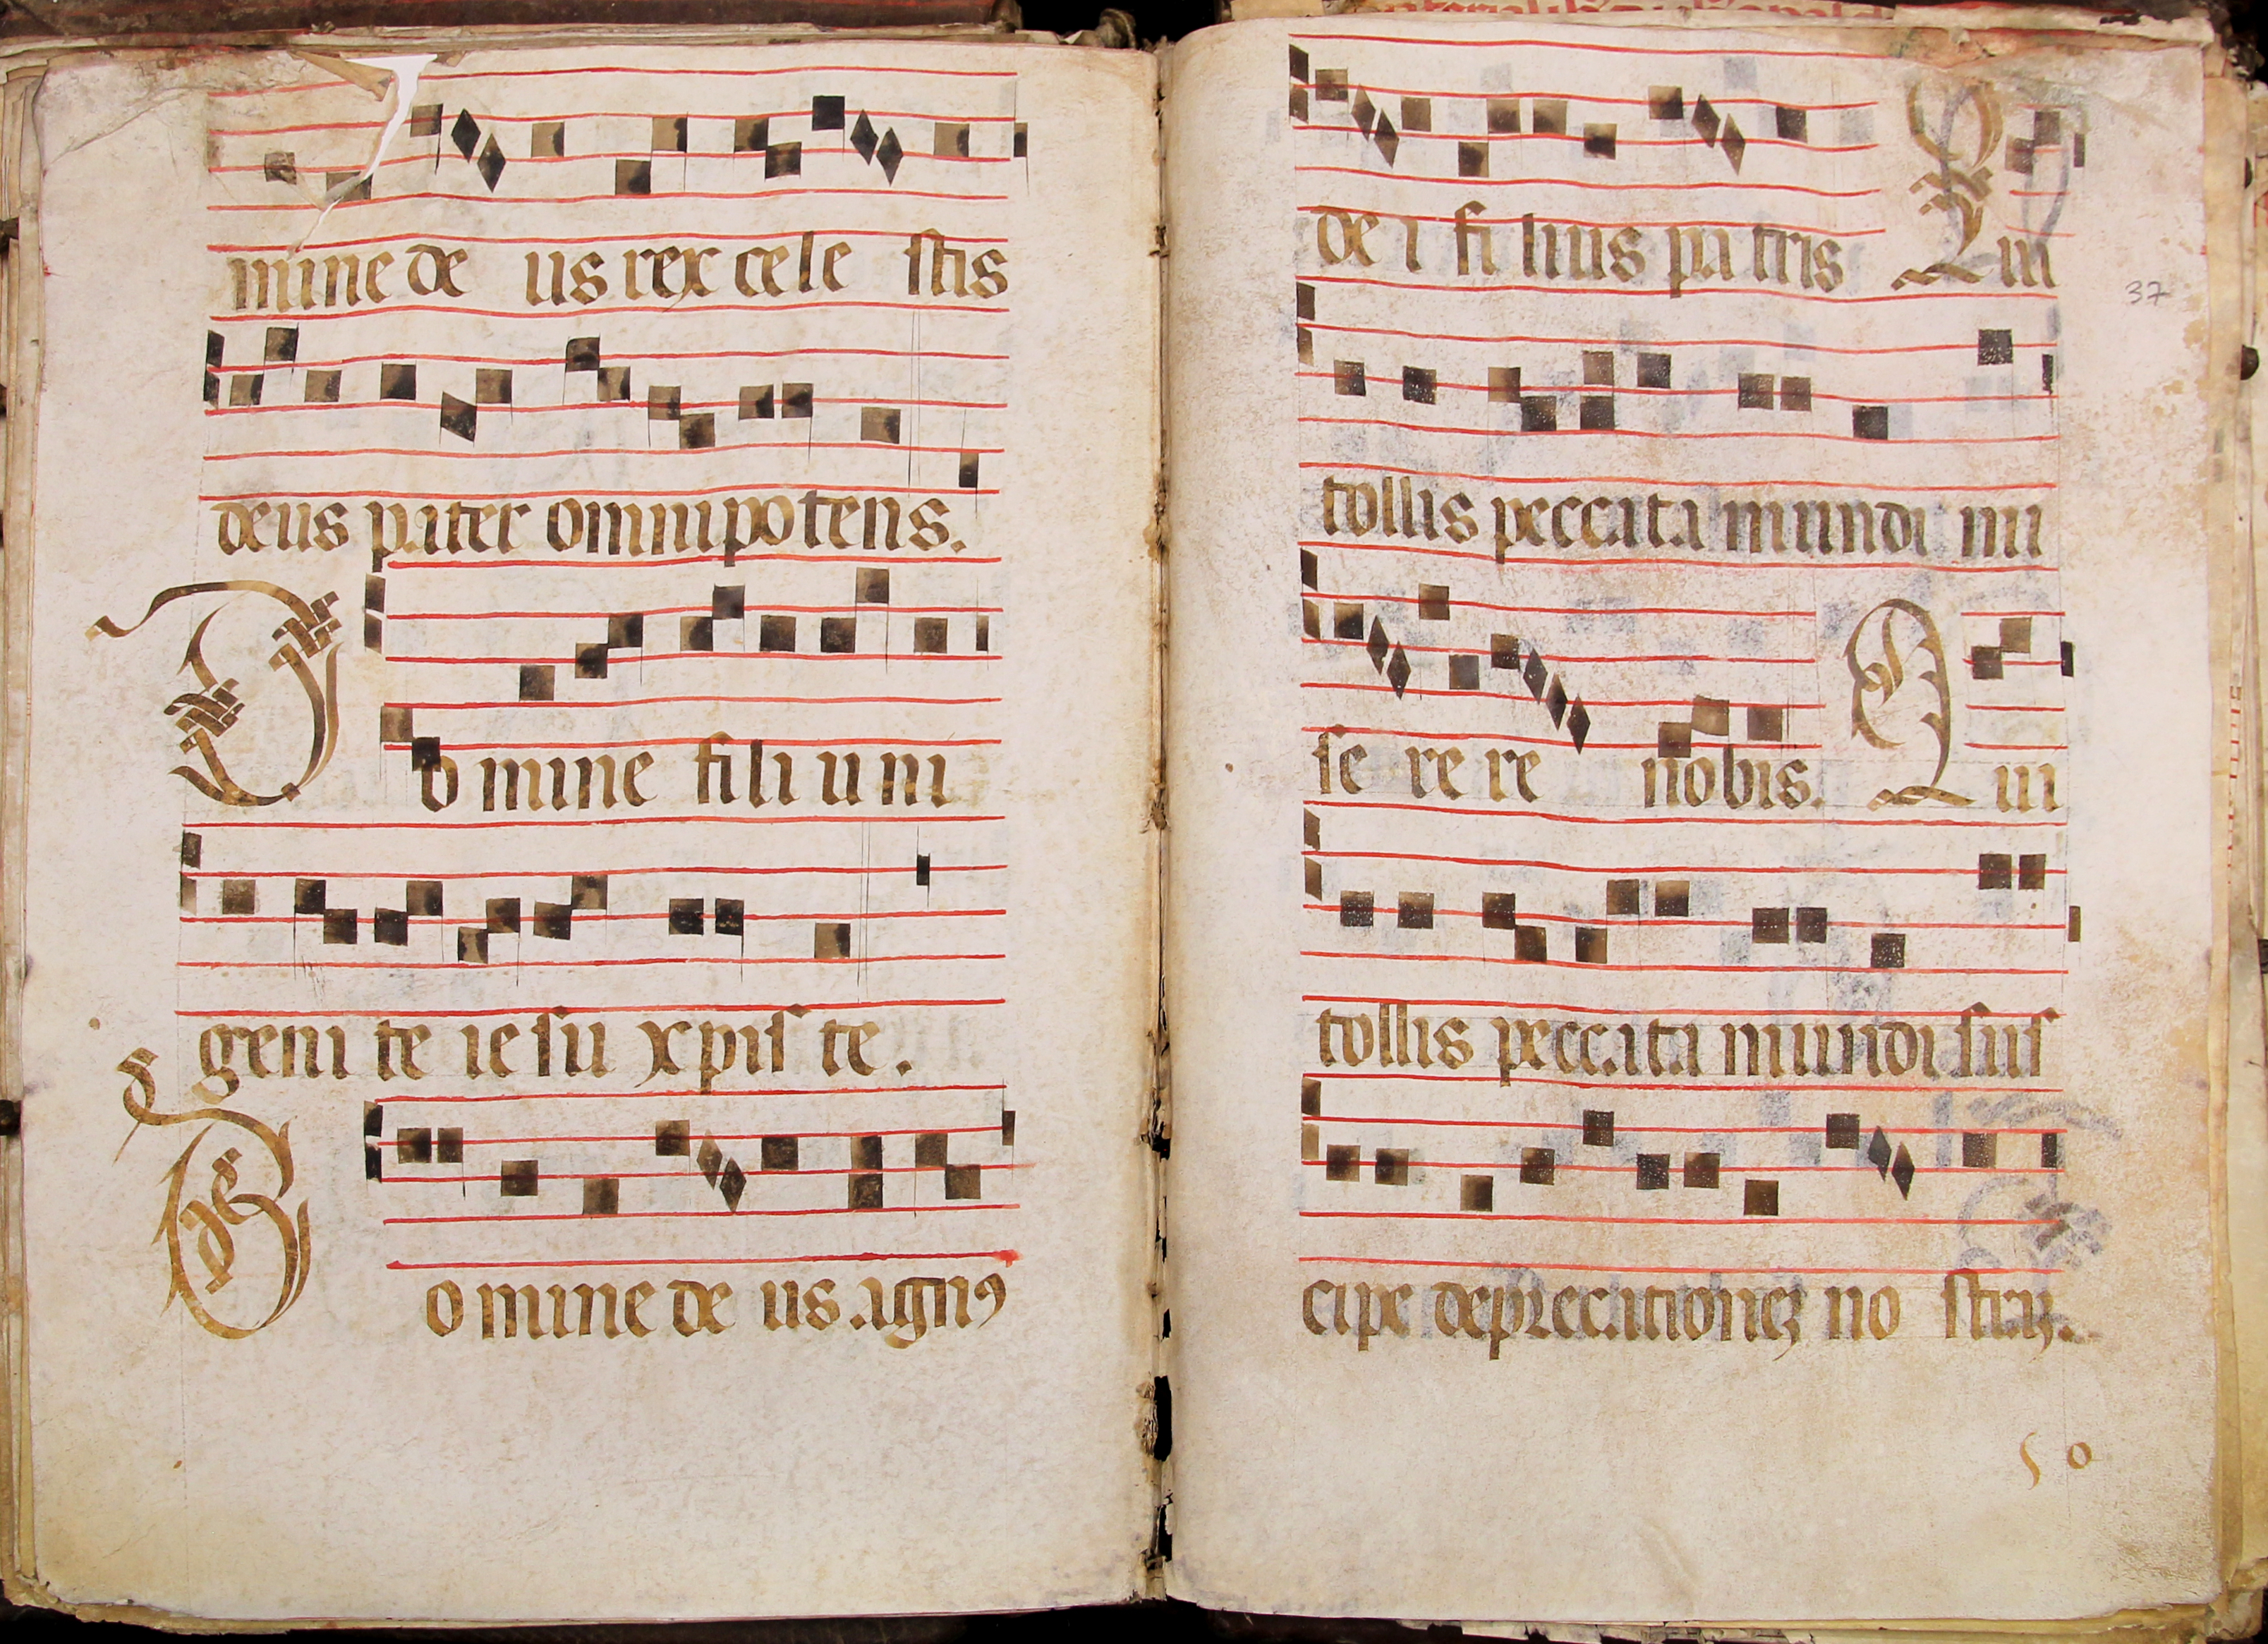 mine de us rex cele stis
deus pater omnipotens.
Domine fili uni
geni te iesu xpiste.
Domine de us agnꝯ
de i fi lius pa tris Qui
37
tollis peccata mundi mi
se re re nobis. Qui
tollis peccata mundi sus
cipe deprecationeꝫ no straꝫ.